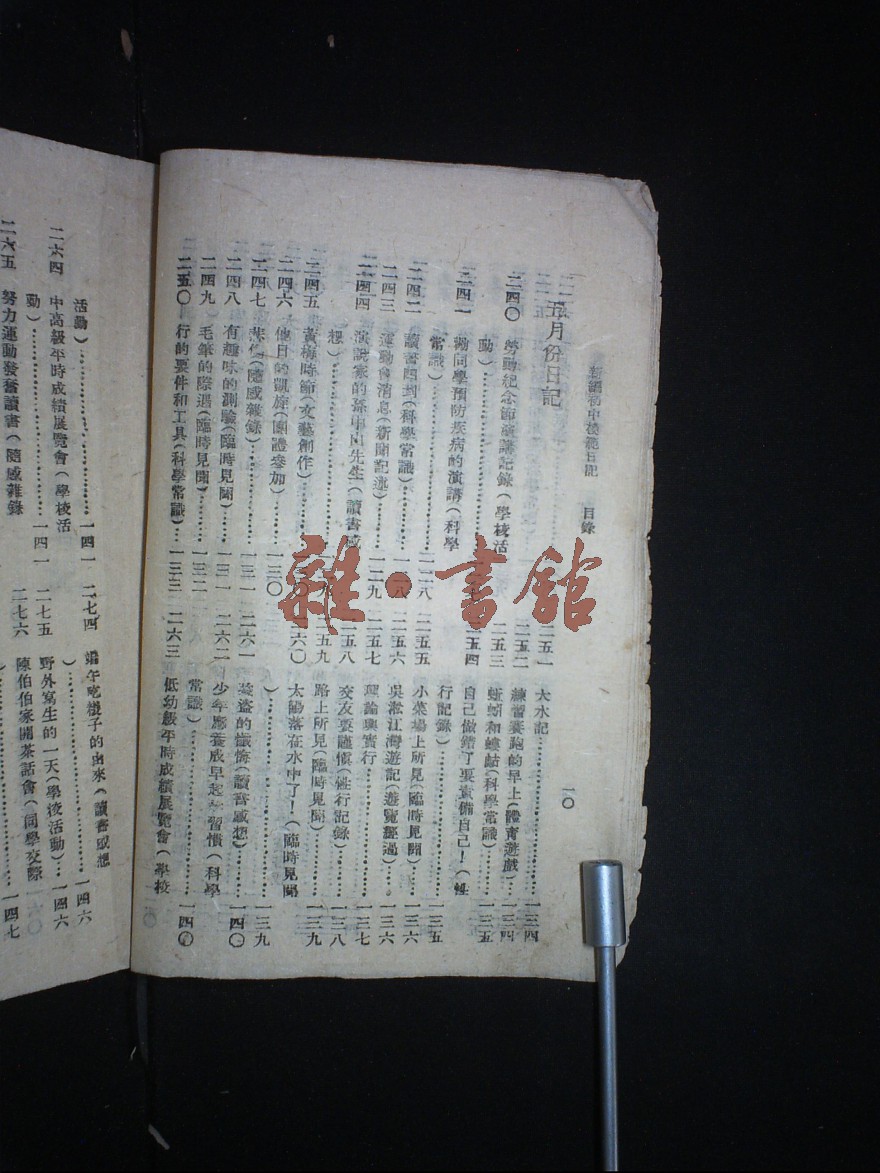 新編初中模範日記　目錄　一〇
五月份日記
二四〇　勞動紀念節演講記錄(學校活
動)…………
二四一　勸同學預防疾病的演講(科學
常識)…………一二八
二四二　讀書四到(科學常識)……一二八
二四三　運動會消息(新聞記述)……一二九
二四四　演說家的孫中山先生(讀書感
想)…………
二四五　黃梅時節(文藝創作)……
二四六　他日的凱旋(團體參加)……一三〇
二四七　悲傷(隨感雜錄)…………一三一
二四八　有趣味的測驗(臨時見聞)……一三一
二四九　毛筆的際遇(臨時見聞)……一三二
二五〇　行的要件和工具(科學常識)…一三三
二五一　大水記…………一三四
二五二　練習賽跑的早上(體育遊戲)…一三四
二五三　蚯蚓和螻蛄(科學常識)……一三五
二五四　自己做錯了要責備自己！(性
行記錄)…………一三五
二五五　小菜場上所見(臨時見聞)……一三六
二五六　吳淞江灣遊記(遊覽經過)……一三六
二五七　理論與實行…………一三七
二五八　交友要謹慎(性行記錄)……一三八
二五九　路上所見(臨時見聞)……一三九
二六〇　太陽落在水中了！(臨時見聞
)…………一三九
二六一　竊盜的懺悔(讀書感想)……一四〇
二六二　少年應養成早起的習慣(科學
常識)…………一四〇
二六三　低幼級平時成績展覽會(學校
活動)…………一四一
二六四　中高級平時成績展覽會(學校活
動)…………一四一
二六五　努力運動發奮讀書(隨感雜錄
二七四　端午吃糉子的由來(讀書感想
)…………一四六
二七五　野外寫生的一天(學校活動)…一四六
二七六　陳伯伯家開茶話會(同學交際
)…………一四七
雜·書館